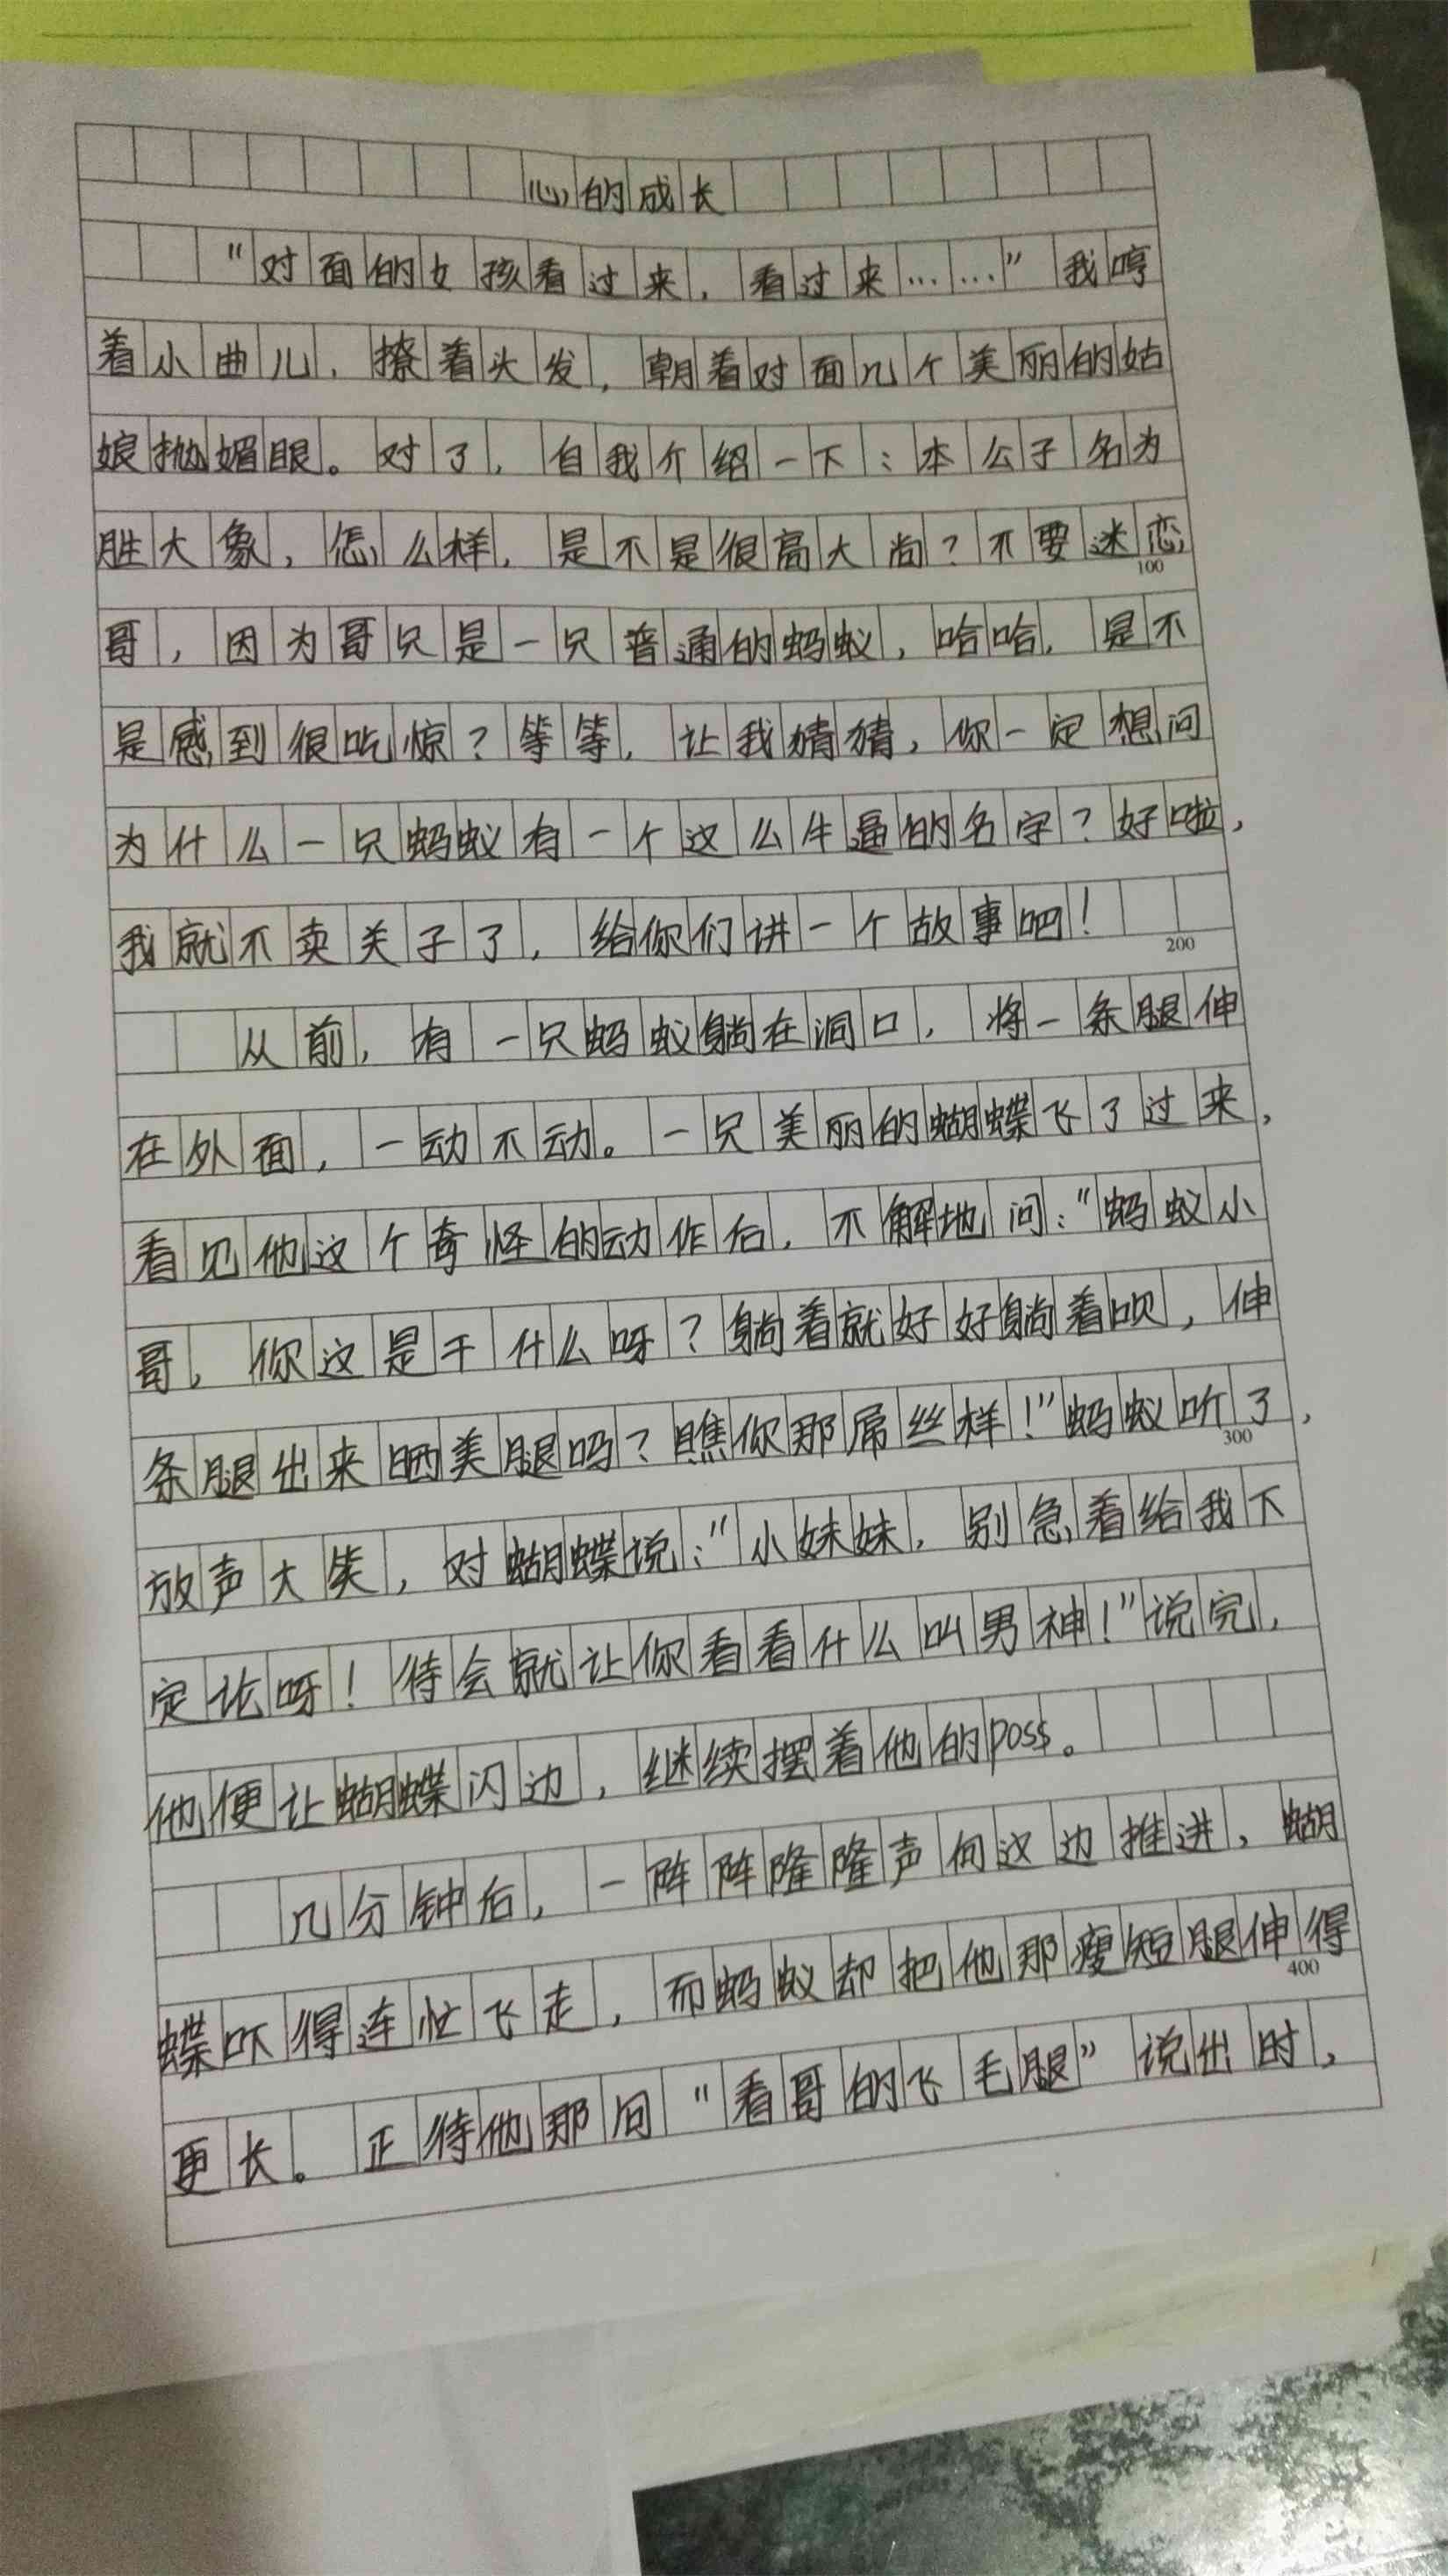 心的成长
“对面的女孩看过来，看过来……”我哼
着小曲儿，撩着头发，朝着对面几个美丽的姑
娘抛媚眼。对了，自我介绍一下：本公子名为
胜大象，怎么样，是不是很高大尚？不要迷恋
100
哥，因为哥只是一只普通的蚂蚁，哈哈，是不
是感到很吃惊？等等，让我猜猜，你一定想问
为什么一只蚂蚁有一个这么牛逼的名字？好啦，
我就不卖关子了，给你们讲一个故事吧！
200
从前，有一只蚂蚁躺在洞口，将一条腿伸
在外面，一动不动。一只美丽的蝴蝶飞了过来，
看见他这个奇怪的动作后，不解地问：“蚂蚁小
哥，你这是干什么呀？躺着就好好躺着呗，伸
条腿出来晒美腿吗？瞧你那屌丝样！”蚂蚁听了，
300
放声大笑，对蝴蝶说：“小妹妹，别急着给我下
定论呀！待会就让你看看什么叫男神！”说完，
他便让蝴蝶闪边，继续摆着他的poss。
几分钟后，一阵阵隆隆声向这边推进，蝴
蝶吓得连忙飞走，而蚂蚁却把他那瘦短腿伸得
400
更长。正待他那句“看哥的飞毛腿”说出时，